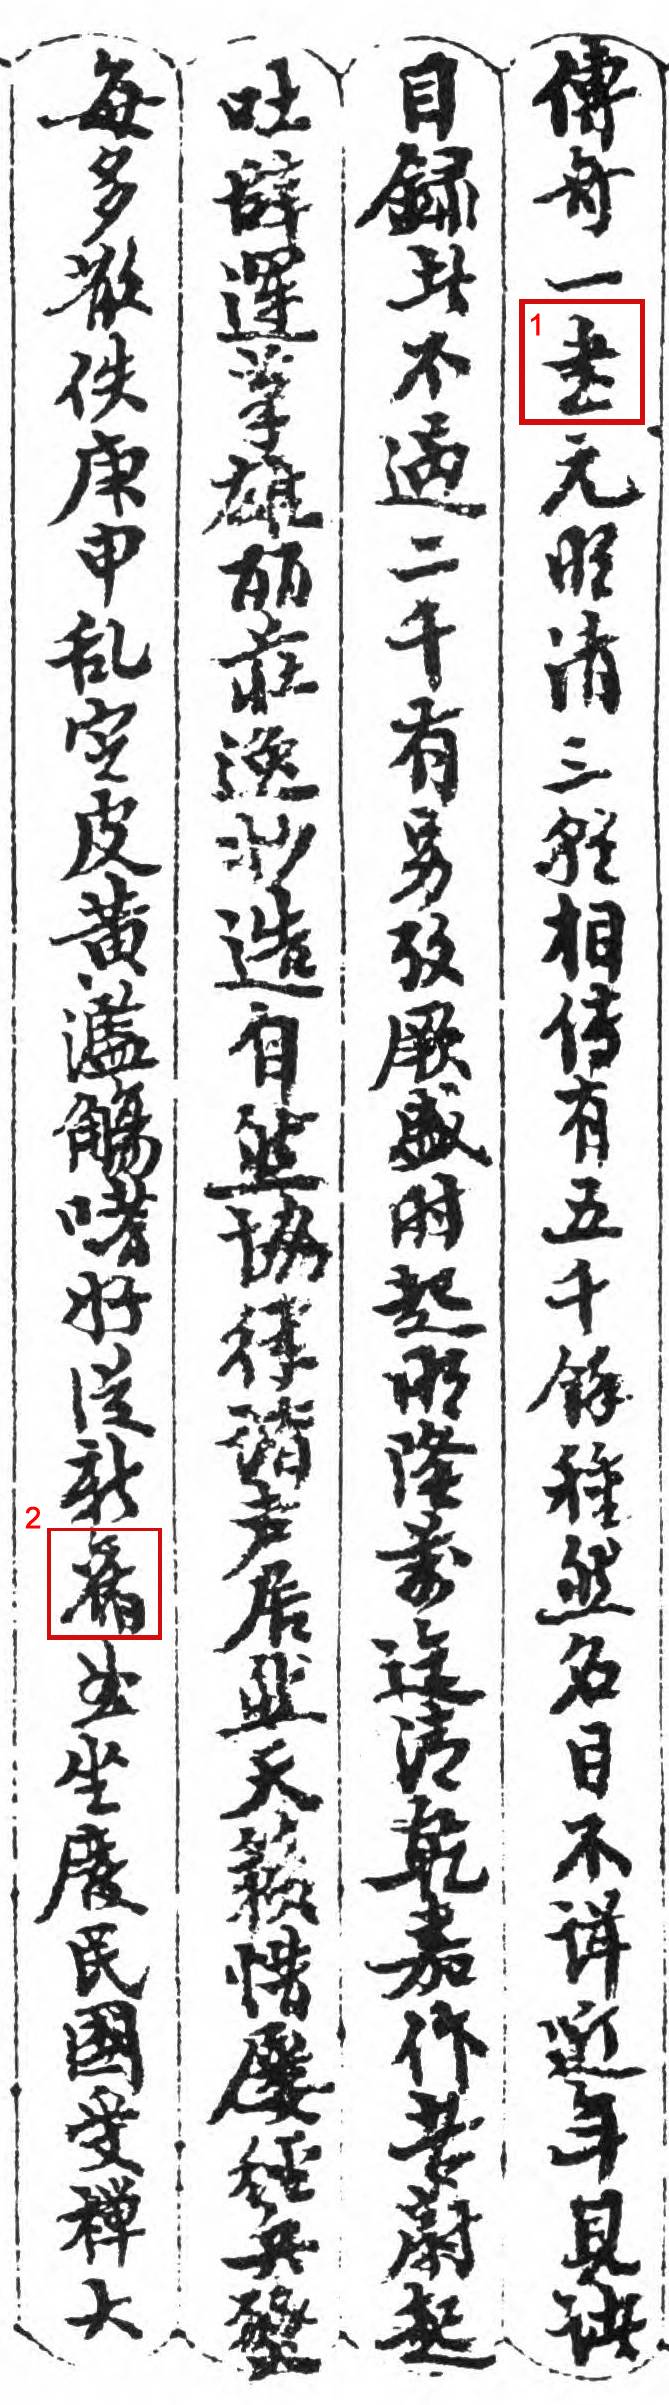 傳奇一書元明清三朝相傳有五千餘種然名目不詳近年見諸
目錄此不過二千有另攷厥盛時起明隆萬迄清乾嘉作者蔚起
吐辭運筆雄麗莊逸妙造自然協律諧声居然天籟惜屢經兵燹
每多散佚庚申乱定皮黄濫觴嗜好從新舊書坐廢民國受禪大
1
2